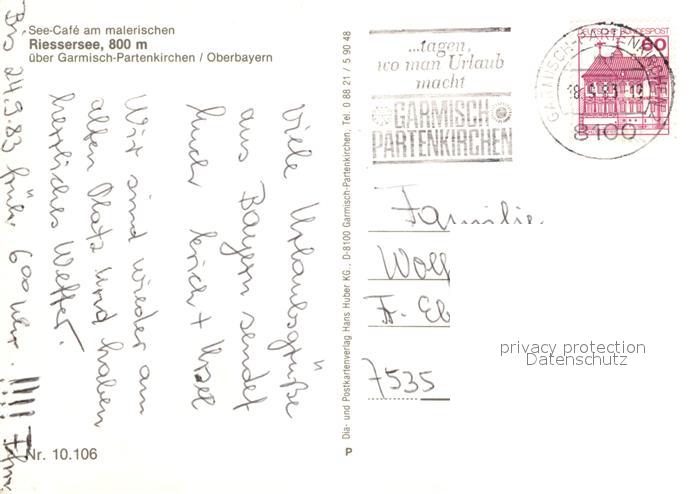 See-Café am malerischen
Riessersee, 800 m
über Garmisch-Partenkirchen / Oberbayern
Viele Urlaubsgrüße
aus Bayern sendet
Euch Erich + Ursel
Wir sind wieder am
alten Platz und haben
herrliches Wetter.
Bis 24.9.83 früh 6 00 Uhr. !!!!!
Nr. 10.106
Dia- und Postkartenverlag Hans Huber KG., D-8100 Garmisch-Partenkirchen, Tel. 0 88 21 / 5 90 48
P
...tagen,
wo man Urlaub
macht
GARMISCH
PARTENKIRCHEN
DEUTSCHE BUNDESPOST
60
GARMISCH-PARTENKIRCHEN
8100
Familie
Wolf
Fr. Eb
7535
privacy protection
Datenschutz